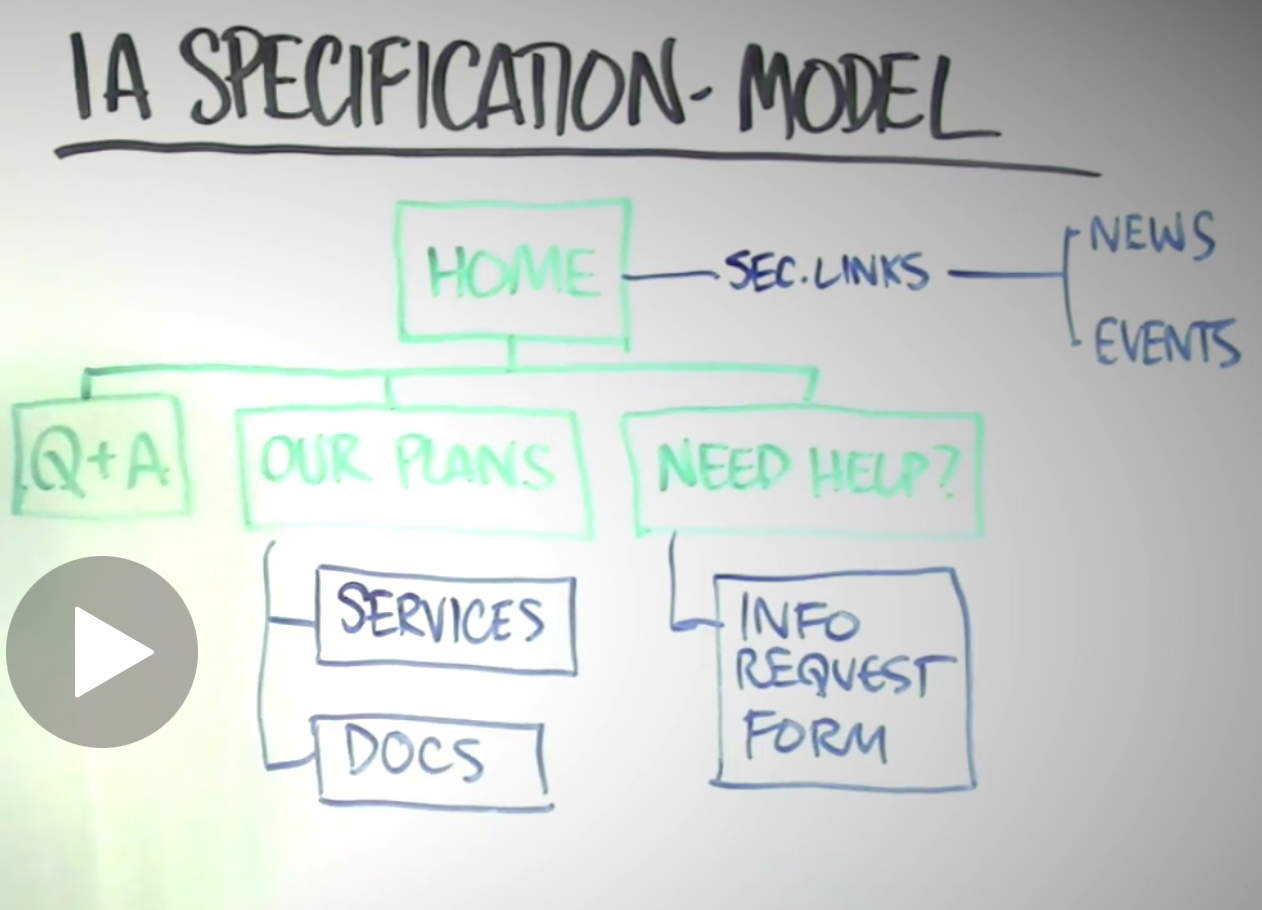 IA SPECIFICATION - MODEL
HOME
SEC. LINKS
NEWS
EVENTS
Q+A
OUR PLANS
NEED HELP?
SERVICES
DOCS
INFO
REQUEST
FORM